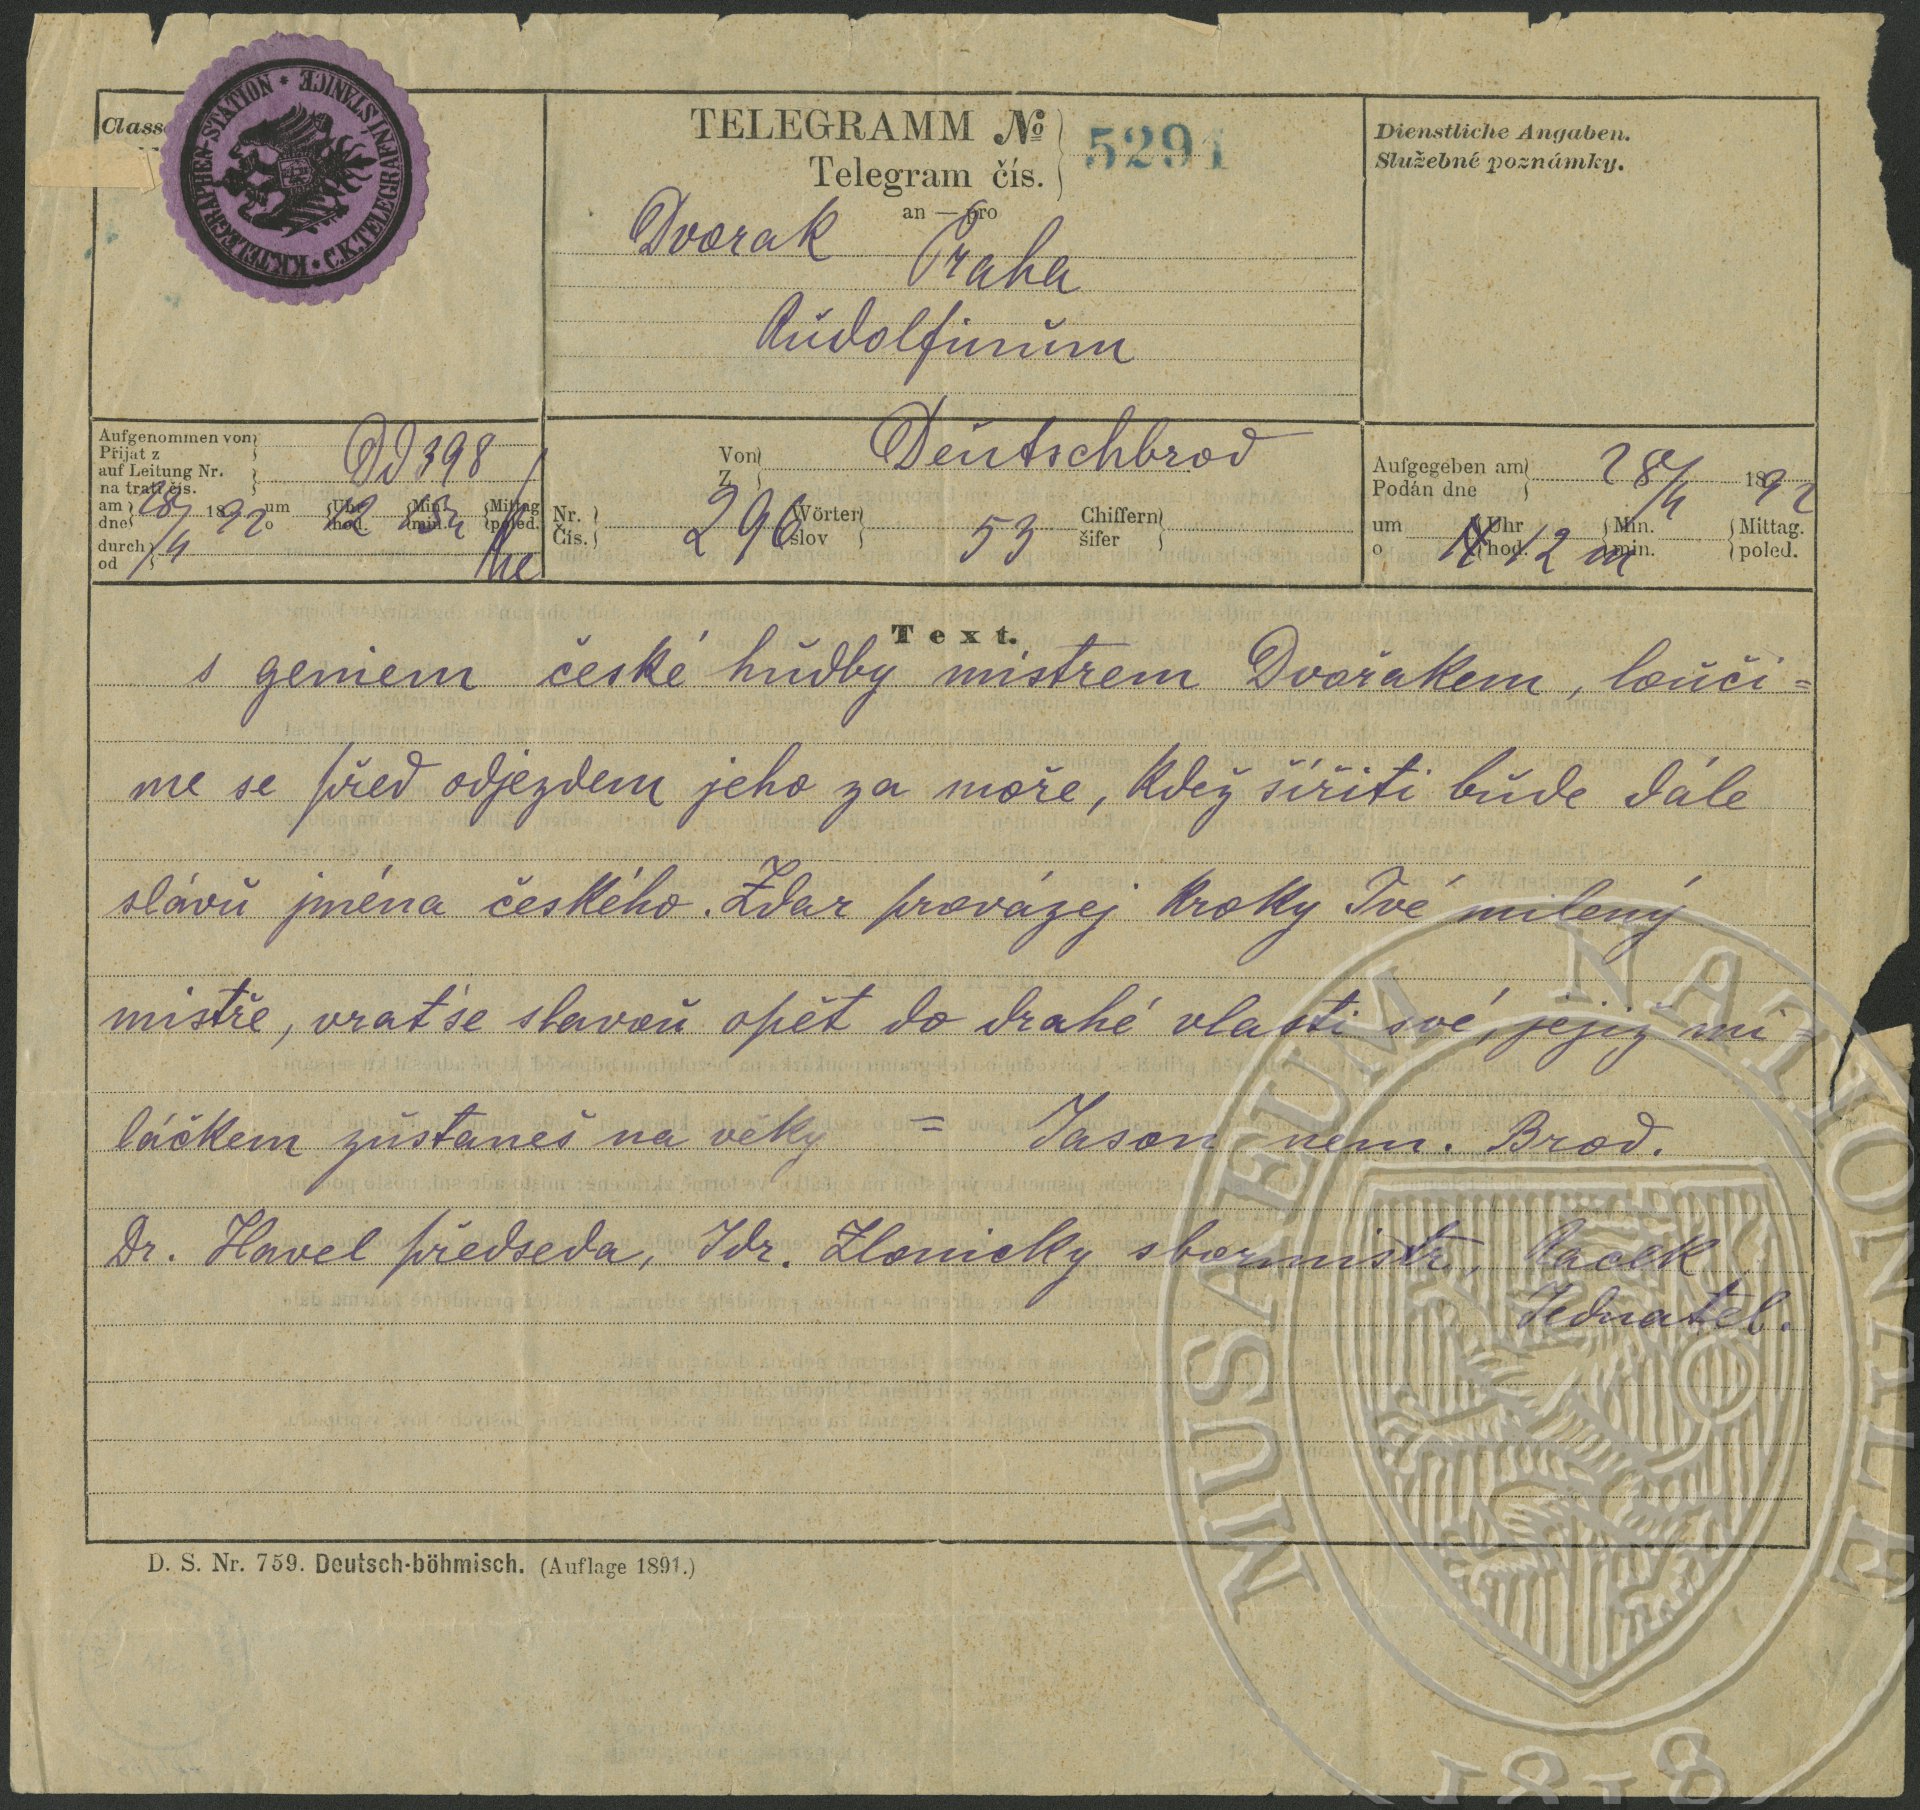 Class
K.K.TELEGRAPHEN-STATION * C.K.TELEGRAFNÍ STANICE *
TELEGRAMM No
Telegram čís.
5291
an — pro
Dvorak Praha
Rudolfinum
Dienstliche Angaben.
Služebné poznámky.
Aufgenommen von
Přijat z
auf Leitung Nr.
na trati čís.
398
am 28/4 1892 um Uhr Min. Mittag
dne o hod. min. poled.
durch
od
Von Deutschbrod
Z
Nr. 296 Wörter 53 Chiffern
Čís. slov šifer
Aufgegeben am 28/4 1892
Podán dne
um Uhr 12 Min. Mittag.
o hod. m min. poled.
Text.
s geniem české hudby mistrem Dvořakem, louči=
me se před odjezdem jeho za moře, kdež šířiti bude dále
slávu jména českého. Zdar provázej kroky Tvé milený
mistře, vrať se slavou opět do drahé vlasti své, jejiž mi=
láčkem zůstaneš na věky = Jason nem. Brod.
Dr. Havel předseda, Idr. Zlonicky sbormistr, Racek
Jednatel.
D. S. Nr. 759. Deutsch-böhmisch. (Auflage 1891.)
MUSAEUM NATIONALE
1818